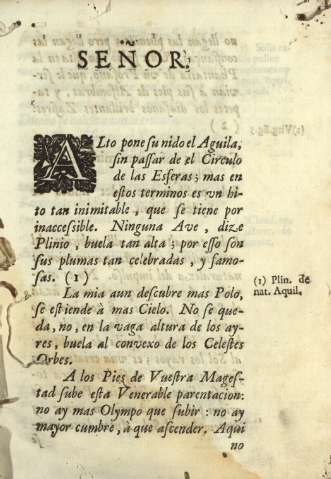 SEÑOR.
ALto pone su nido el Aguila,
sin passar de el Circulo
de las Esferas; mas en
estos terminos es vn hi-
to tan inimitable, que se tiene por
inaccessible. Ninguna Ave, dize
Plinio, buela tan alta; por esso son
sus plumas tan celebradas, y famo-
sas. (1)
(1) Plin. de
nat. Aquil.
La mia aun descubre mas Polo,
se estiende à mas Cielo. No se que-
da, no, en la vaga altura de los ay-
res, buela al convexo de los Celestes
Orbes.
A los Pies de Vuestra Magest-
tad sube esta Venerable parentacion:
no ay mas Olympo que subir: no ay
mayor cumbre, à que ascender. Aqui
no